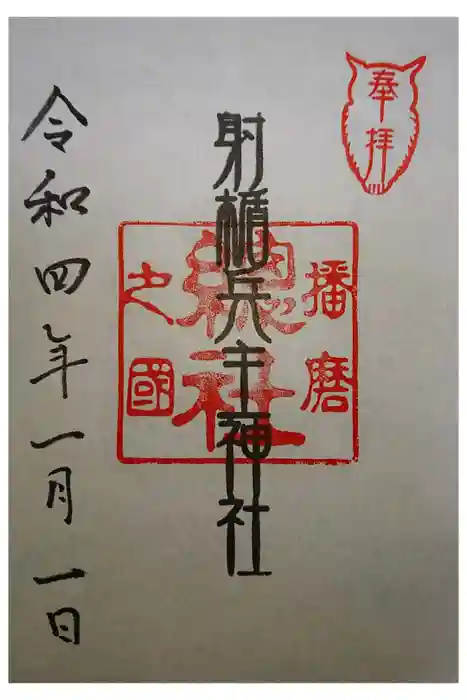 奉拝
播磨
総社
之國
射楯兵主神社
令和四年一月一日